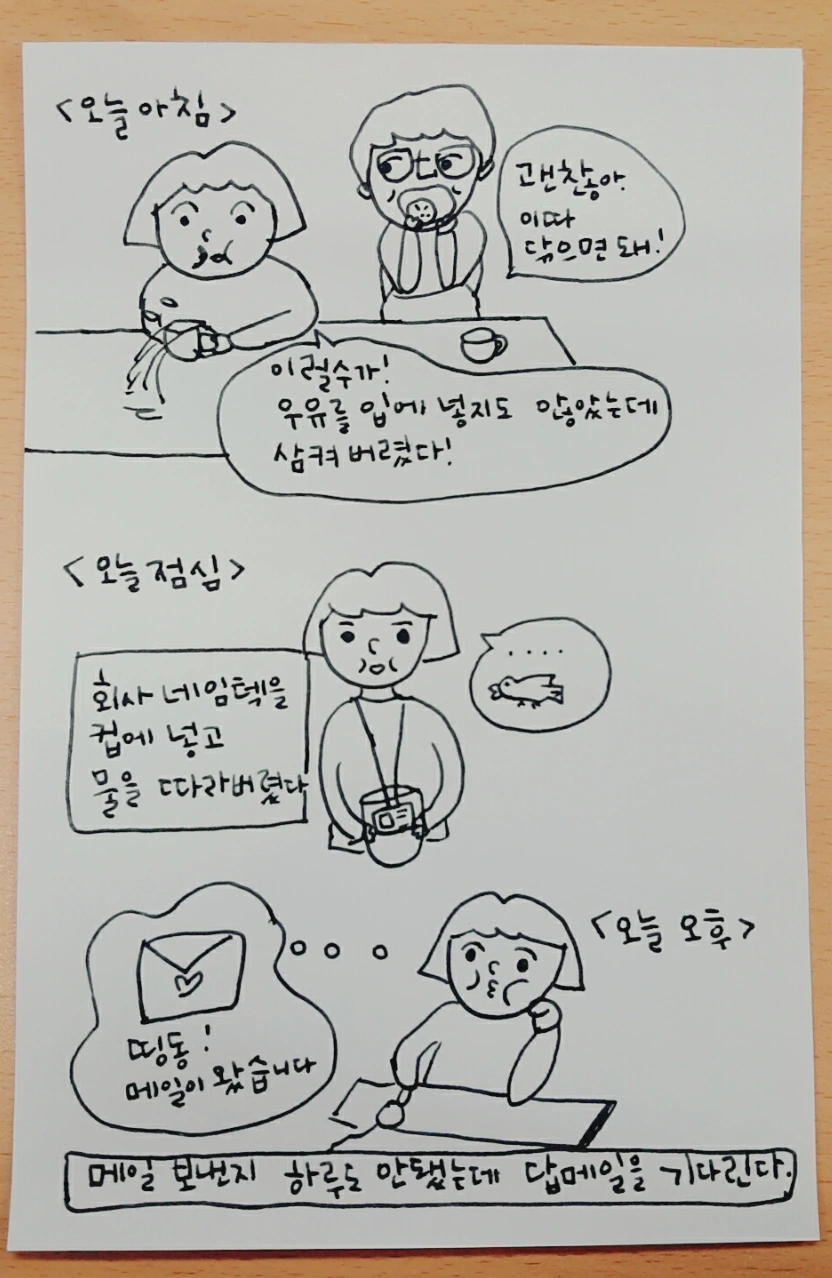 <오늘 아침>
괜찮아.
이따
닦으면 돼!
이럴수가!
우유를 입에 넣지도 않았는데
삼켜 버렸다!
<오늘 점심>
회사 네임텍을
컵에 넣고
물을 따라버렸다
....
<오늘 오후>
띵동!
메일이 왔습니다
메일 보낸지 하루도 안됐는데 답메일을 기다린다.